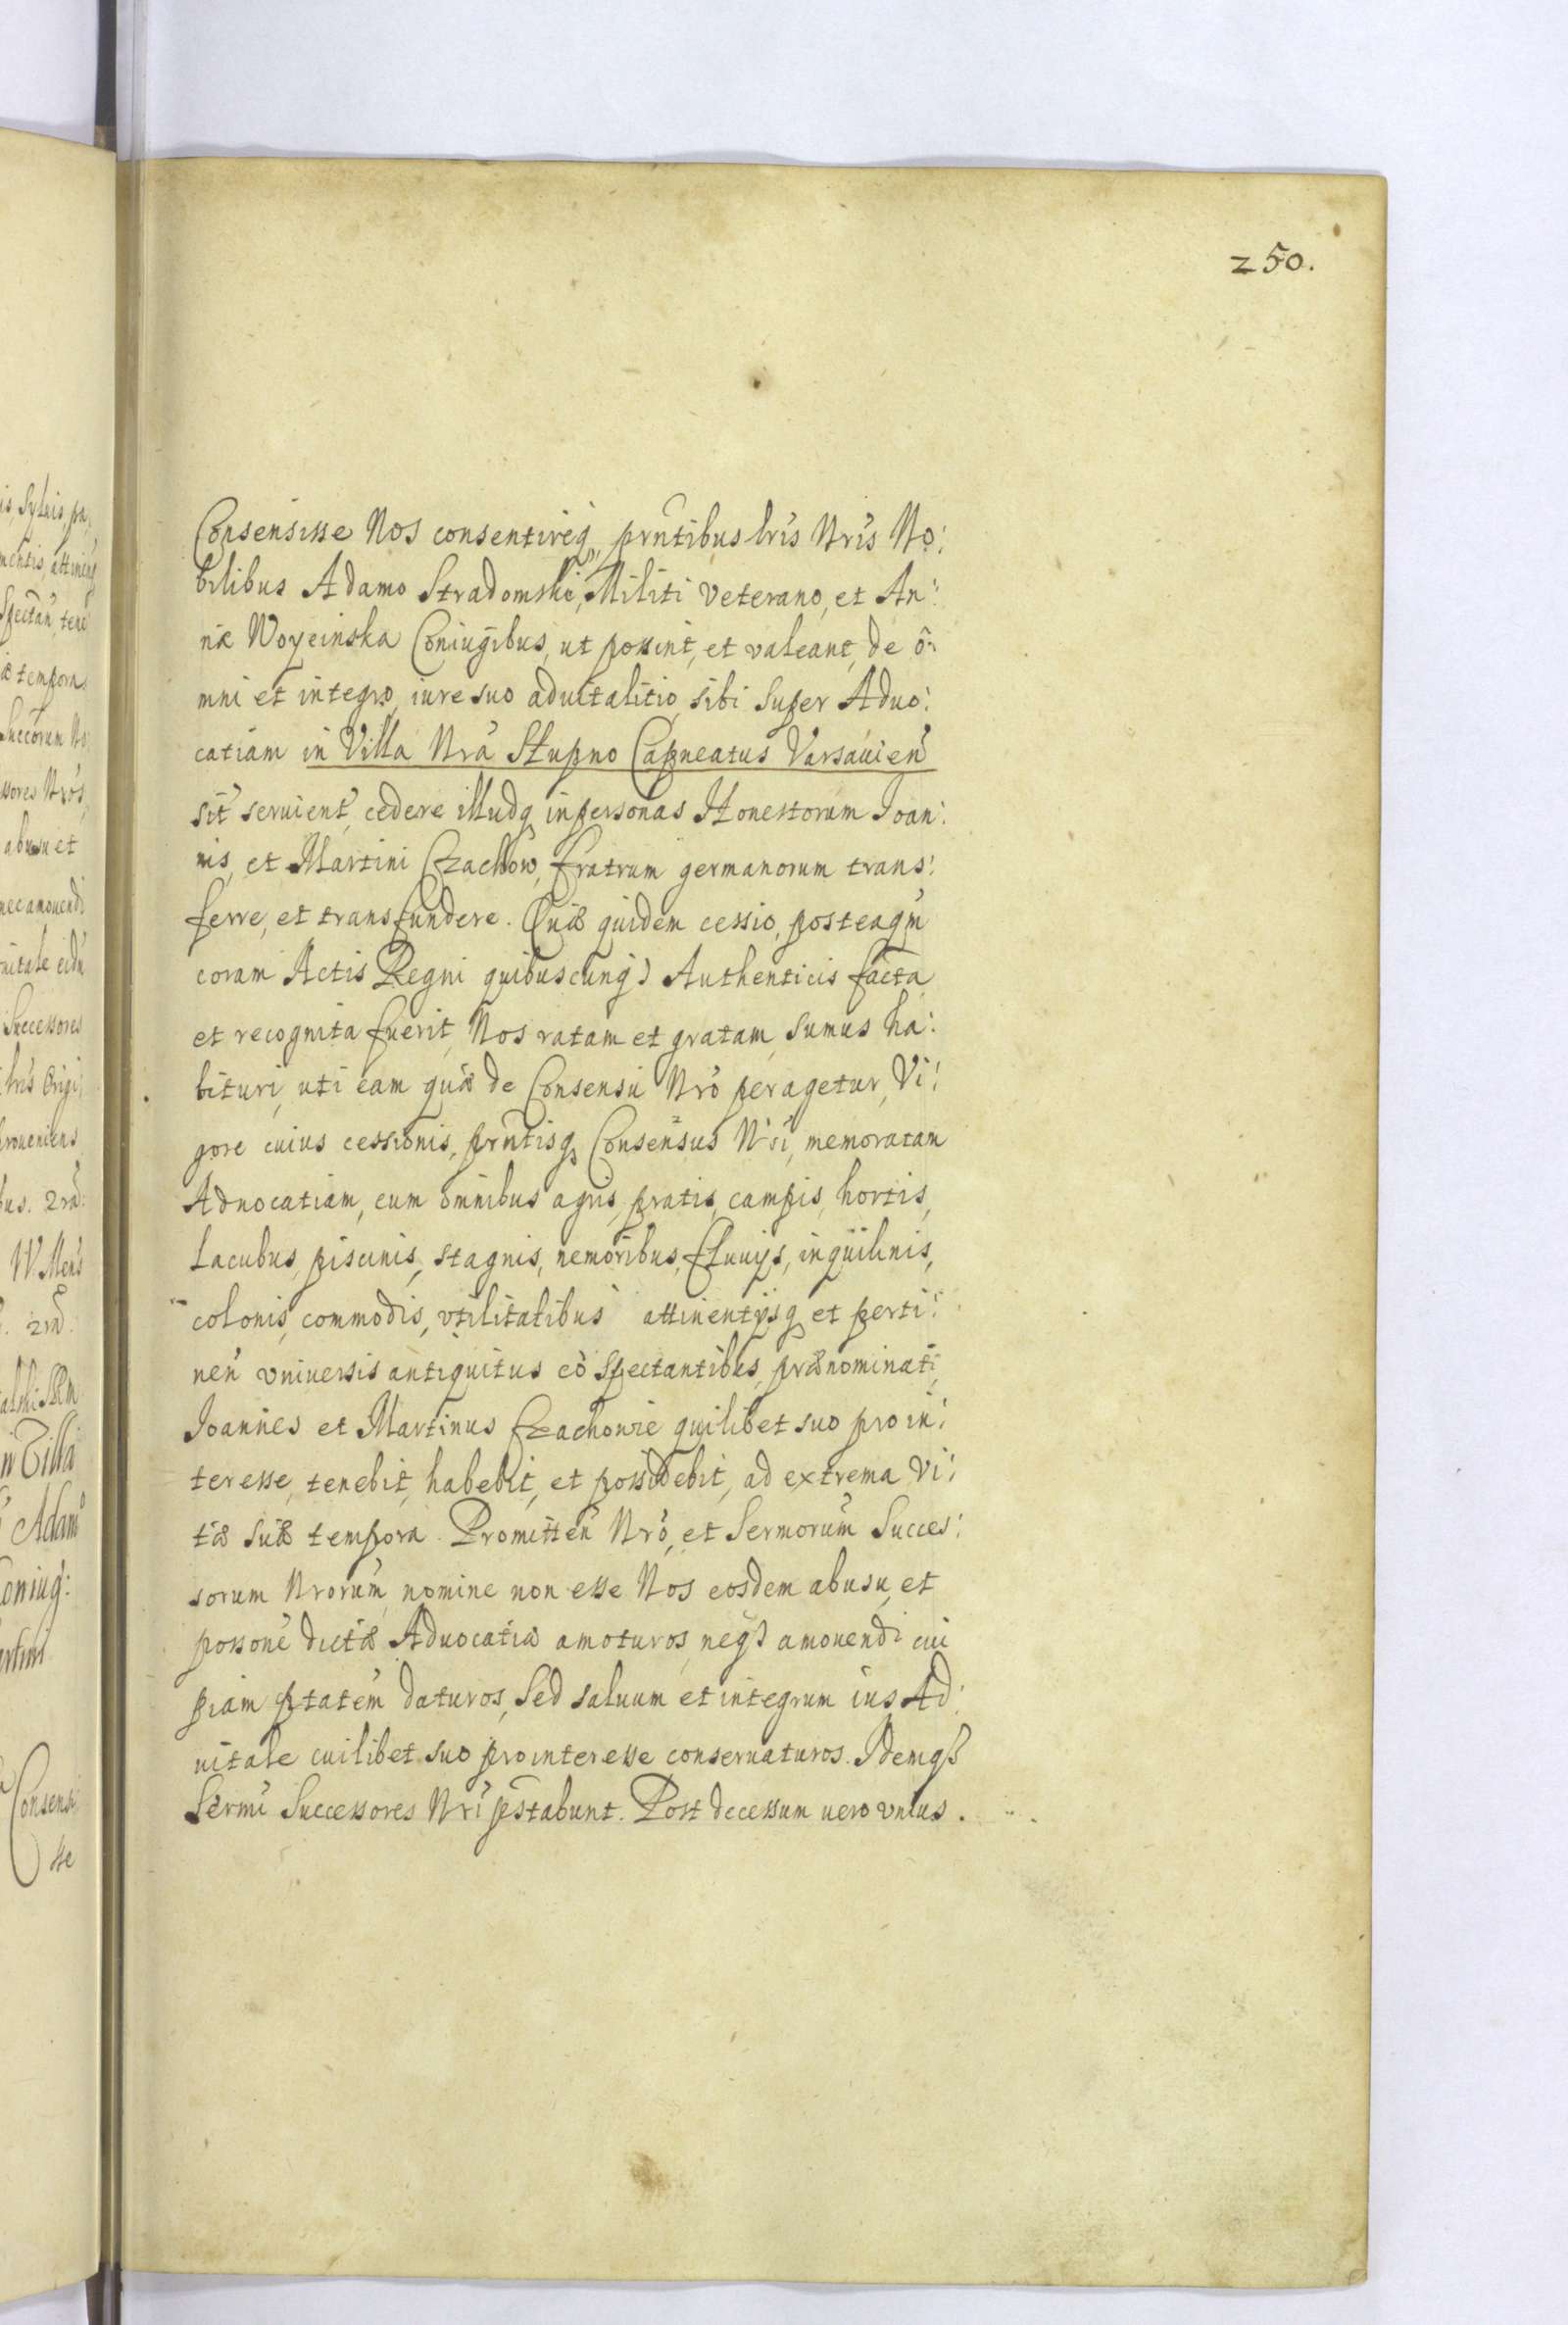 250.
Consensisse Nos consentireq, prntibus lris Nris No:
bilibus Adamo Stradomski, Militi veterano, et An:
næ Woyeinska Coniugibus, ut possint, et valeant, de o:
mni et integro, iure suo aduitalitio, sibi super Aduo:
catiam in Villa Nra Stupno Capneatus Varsauien
sit seruient, cedere illudq in personas Honestorum Joan:
nis, et Martini Czachow, fratrum germanorum trans:
ferre, et transfundere. Quæ quidem cessio, posteaqm
coram Actis Regni quibuscunq Authenticis facta
et recognita fuerit, Nos ratam et gratam, sumus ha:
bituri, uti eam quæ de Consensu Nro peragetur, Vi:
gore cuius cessionis, prntisq Consensus Nri, memoratam
Aduocatiam, cum omnibus agris, pratis, campis, hortis,
Lacubus, piscinis, stagnis, nemoribus, fluuijs, inquilinis,
colonis, commodis, vtilitatibus attinentijsq et perti:
nen vniuersis antiquitus eo spectantibus, prænominati,
Joannes et Martinus Czachowie quilibet suo pro in:
teresse, tenebit, habebit, et possidebit, ad extrema vi:
tæ suæ tempora. Promitten Nro, et Sermorum Succes:
sorum Nrorum, nomine non esse Nos eosdem abusu, et
possone dictæ Aduocatiæ amoturos, neq amouendi cui
piam ptatem daturos, sed saluum et integrum ius Ad:
uitale cuilibet suo prointeresse conseruaturos. Idemq
Sermi Successores Nri pstabunt. Post decessum uero vnius.
is, Syluis, pa
Spectan, tene
tempora
abusu et
nec amouendi
Successores
Origi
proueniens
bus.
Villa
Adam
oniug:
Consensi
sse